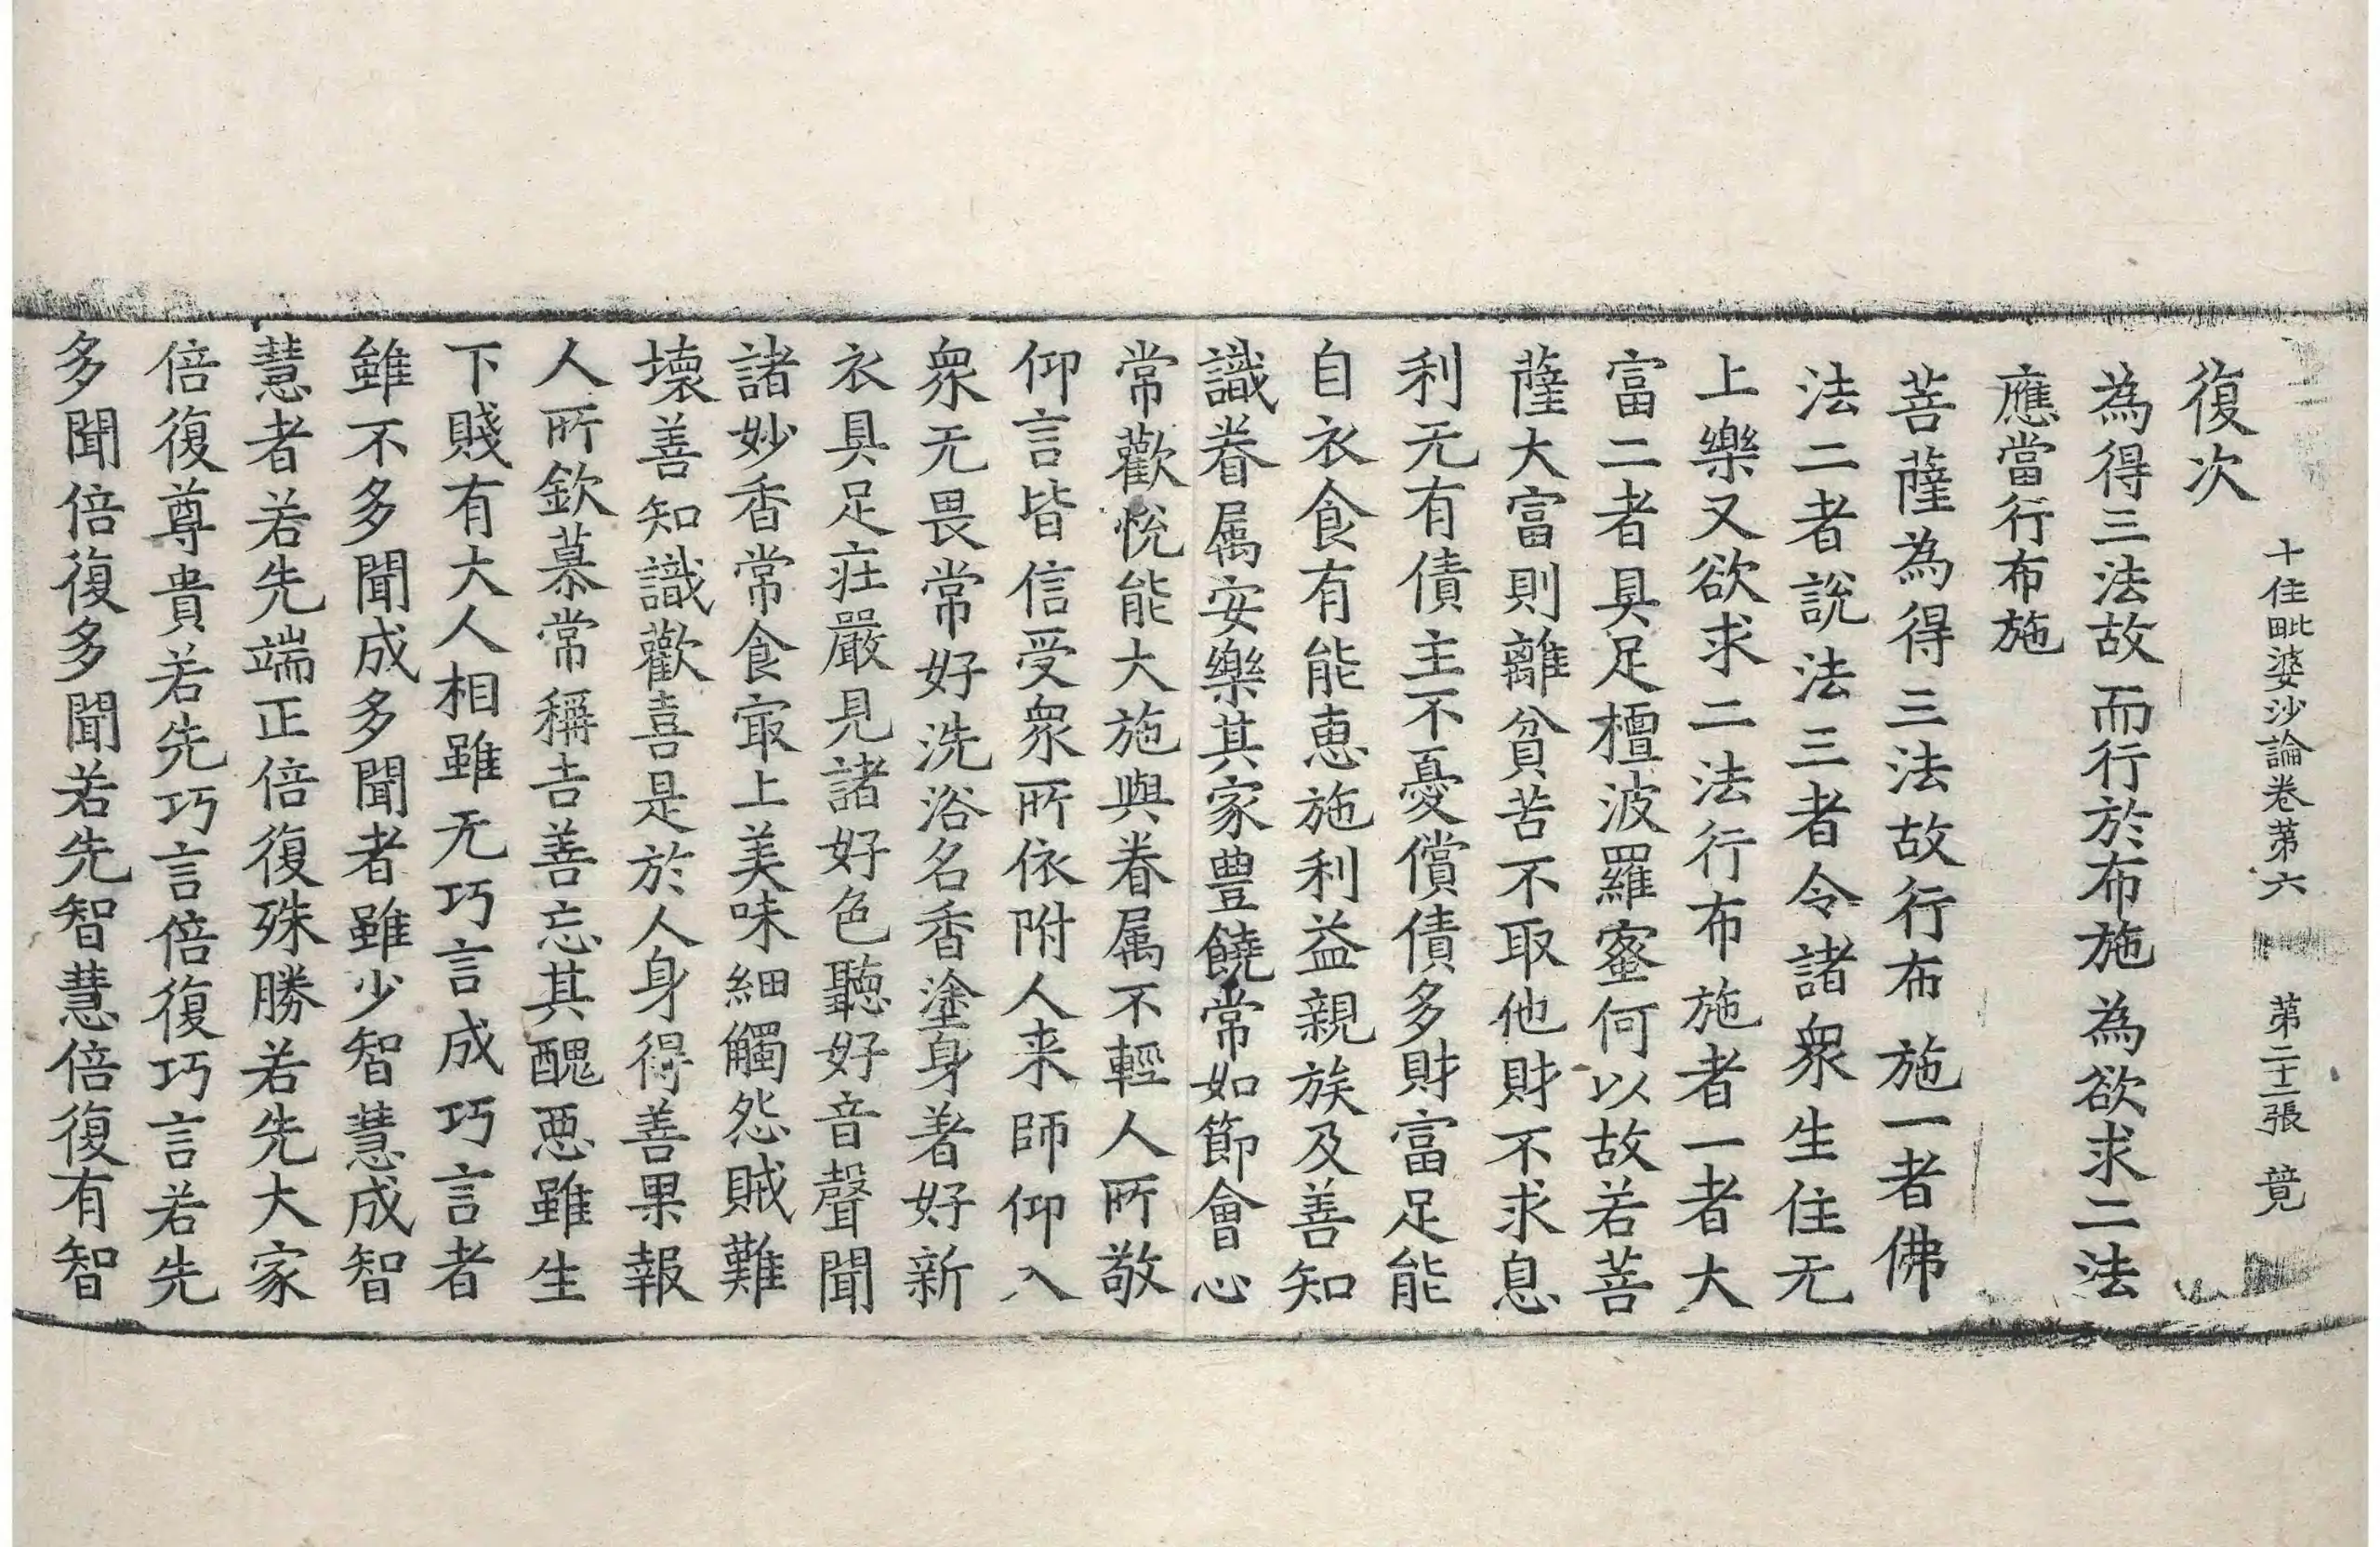 十住毗婆沙論卷第六 第二十二張 竟
復次
為得三法故 而行於布施 為欲求二法
應當行布施
菩薩為得三法故行布施一者佛
法二者說法三者令諸衆生住无
上樂又欲求二法行布施者一者大
富二者具足檀波羅蜜何以故若菩
薩大富則離貧苦不取他財不求息
利无有債主不憂償債多財富足能
自衣食有能惠施利益親族及善知
識眷属安樂其家豊饒常如節會心
常歡悅能大施與眷属不輕人所敬
仰言皆信受衆所依附人来師仰入
衆无畏常好洗浴名香塗身著好新
衣具足莊嚴見諸好色聽好音聲聞
諸妙香常食㝡上美味細觸怨賊難
壞善知識歡喜是於人身得善果報
人所欽慕常稱吉善忘其醜惡雖生
下賤有大人相雖无巧言成巧言者
雖不多聞成多聞者雖少智慧成智
慧者若先端正倍復殊勝若先大家
倍復尊貴若先巧言倍復巧言若先
多聞倍復多聞若先智慧倍復有智